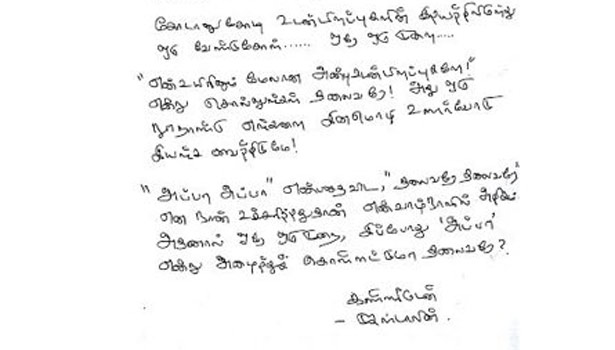 கோடானுகோடி உடன்பிறப்புகளின் இதயத்திலிருந்து
ஒரு வேண்டுகோள்...... ஒரே ஒரு முறை....
"என் உயிரினும் மேலான அன்பு உடன்பிறப்புகளே!"
என்று சொல்லுங்கள் தலைவரே! அது ஒரு
நூறாண்டு எங்களை இனமொழி உணர்வோடு
இயங்க வைத்திடுமே!
"அப்பா அப்பா" என்பதைவிட, "தலைவரே தலைவரே"
என நான் உச்சரித்ததுதான் என் வாழ்நாளில் அதிகம்.
அதனால் ஒரே ஒரு முறை, இப்போது 'அப்பா'
என்று அழைத்துக் கொள்ளட்டுமா தலைவரே?
கண்ணீருடன்
- மு.க.ஸ்டாலின்.